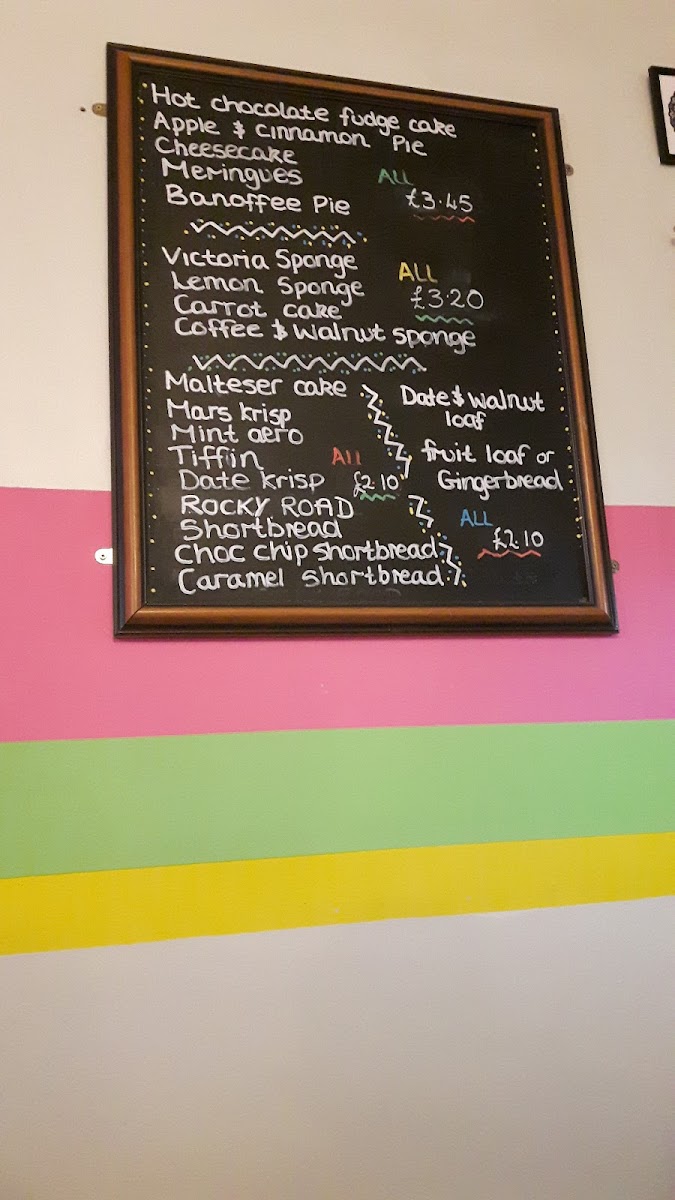 Hot chocolate fudge cake
Apple & cinnamon Pie
Cheesecake
Meringues
Banoffee Pie
ALL
£3.45
Victoria Sponge
Lemon Sponge
Carrot cake
Coffee & Walnut sponge
ALL
£3.20
Malteser cake
Mars krisp
Mint aero
Tiffin
Date krisp
ROCKY ROAD
Shortbread
choc chip shortbread
Caramel shortbread
All
£2.10
Date & walnut
loaf
fruit loaf or
Gingerbread
ALL
£2.10